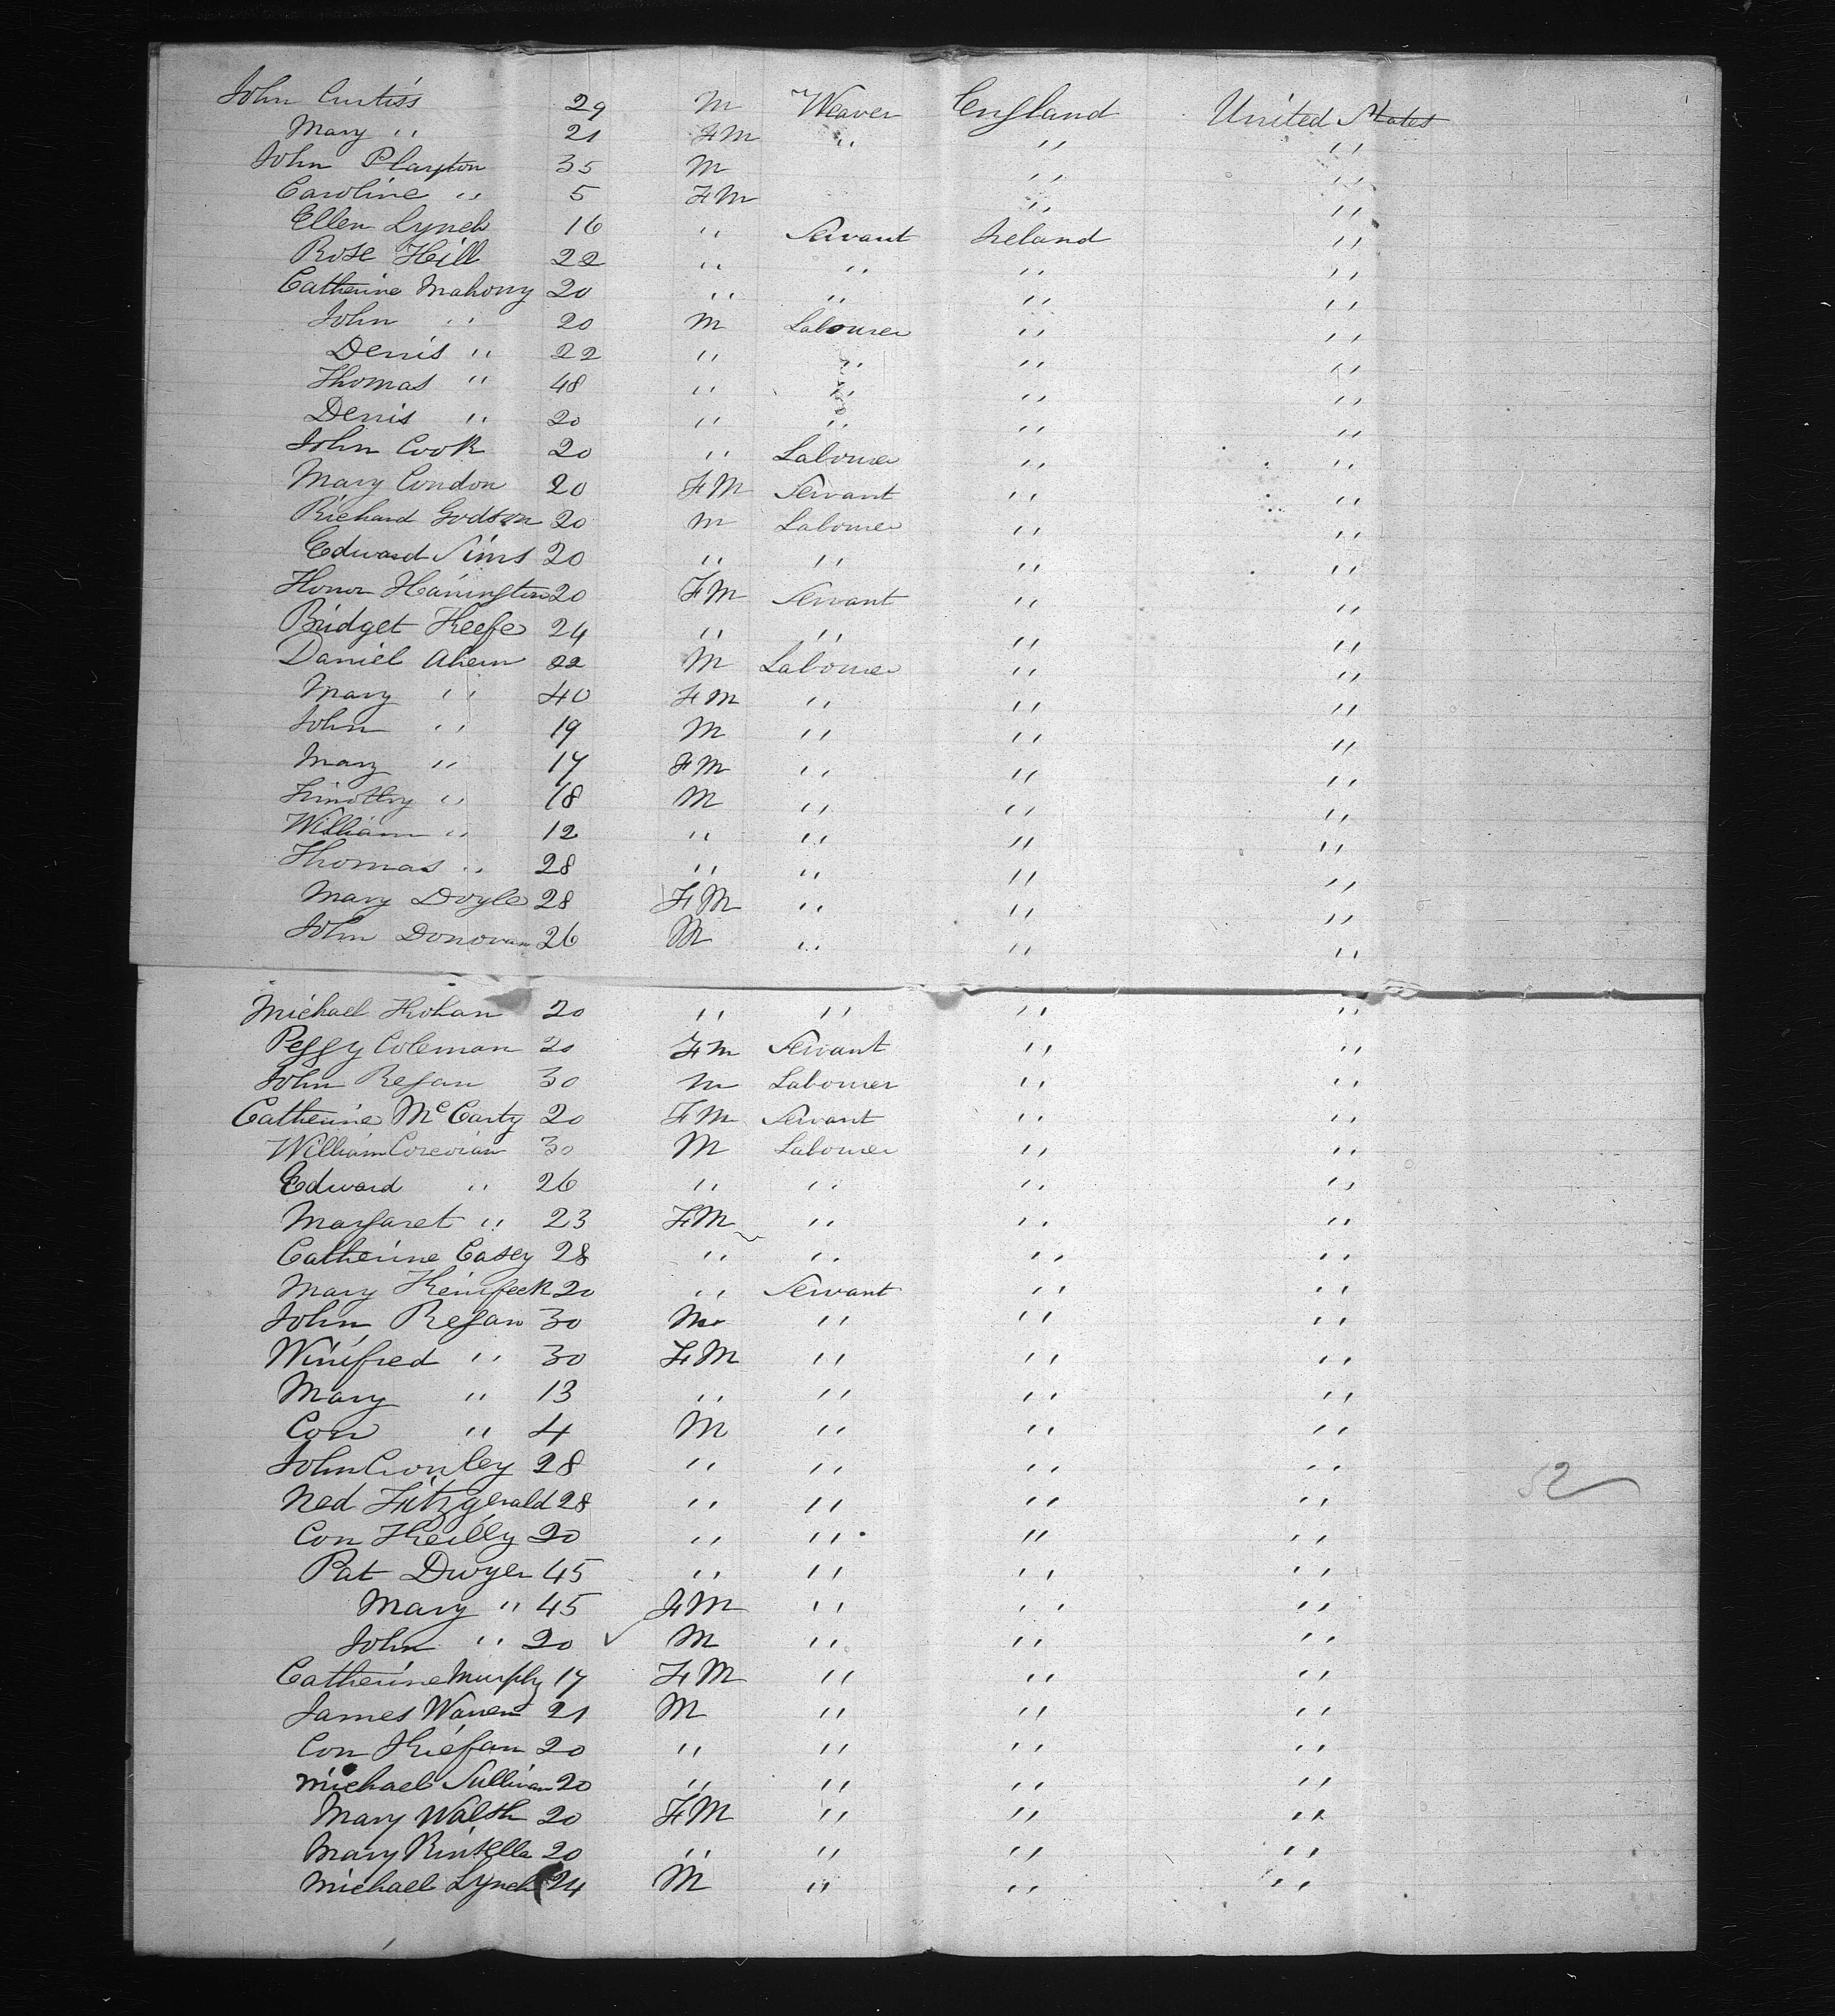 John Curtiss 29 M Weaver England United States
Mary " 21 FM " " "
John Playton 35 M " "
Caroline " 5 FM " "
Ellen Lynch 16 " Servant Ireland "
Rose Hill 22 " " " "
Catherine Mahony 20 " " " "
John " 20 M Labourer " "
Denis " 22 " " " "
Thomas " 48 " " " "
Denis " 20 " " " "
John Cook 20 " Labourer " "
Mary Condon 20 FM Servant " "
Richard Godson 20 M Labourer " "
Edward Sims 20 " " " "
Honor Hanington 20 FM Servant " "
Bridget Keefe 24 " " " "
Daniel Ahern 22 M Labourer " "
Mary " 40 FM " " "
John " 19 M " " "
Mary " 17 FM " " "
Timothy " 18 M " " "
William " 12 " " " "
Thomas " 28 " " " "
Mary Doyle 28 FM " " "
John Donovan 26 M " " "
Michael Hohan 20 " " " "
Peggy Coleman 20 FM Servant " "
John Regan 30 M Labourer " "
Catherine McCarty 20 FM Servant " "
William 30 M Labourer " "
Edward " 26 " " " "
Margaret " 23 FM " " "
Catherine Casey 28 " " " "
Mary 20 " Servant " "
John Regan 30 M " " "
Winifred " 30 FM " " "
Mary " 13 " " " "
Con " 4 M " " "
John Conley 28 " " " "
Ned Fitzgerald 28 " " " " 52
Con Keilly 20 " " " "
Pat Dwyer 45 " " " "
Mary " 45 FM " " "
John " 20 ✓ M " " "
Catherine Murphy 17 FM " " "
James Warren 21 M " " "
Con 20 " " " "
Michael Sullivan 20 " " " "
Mary Walsh 20 FM " " "
Mary Kinsella 20 " " " "
Michael Lynch 24 M " " "